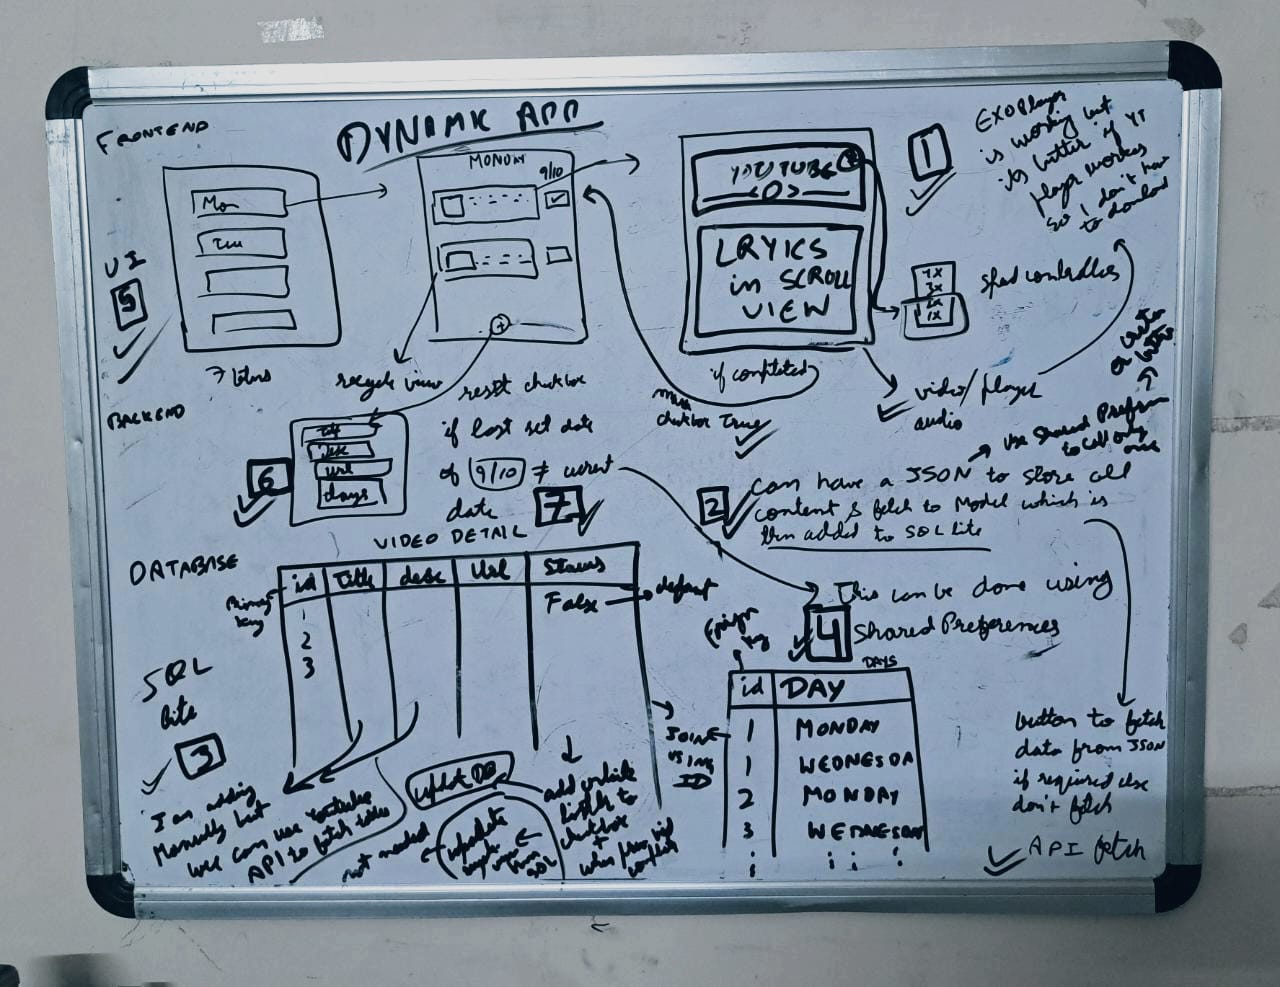 FRONTEND
DYNAMIC APP
UI
5
Mon
Tue
7 btns
MONDAY
9/10
recycle view
YOUTUBE
LRYICS
in SCROLL
VIEW
if completed
checkbox True
1
EXOPlayer
is working but
its better if YT
player works
so I don't have
to download
4x
3x
2x
1x
speed controllers
video/player
audio
BACKEND
6
Title
desc
url
days
reset checkbox
if last set date
of 9/10 ≠ current
date
7
2
can have a JSON to store all
content & fetch to Model which is
then added to SQL lite
Use Shared Preferen
to call only
once
This can be done using
Shared Preferences
4
button to fetch
data from JSON
if required else
don't fetch
API fetch
DATABASE
VIDEO DETAIL
Primary
key
id Title desc Url Status
1 False default
2
3
SQL
lite
3
I am adding
Manually but
we can use Youtube
API to fetch titles
not needed
update DB
add onclick
to
checkbox
+
when
JOINE
USING
ID
Foreign
key
DAYS
id DAY
1 MONDAY
1 WEDNESDA
2 MONDAY
3 WEDNESDAY